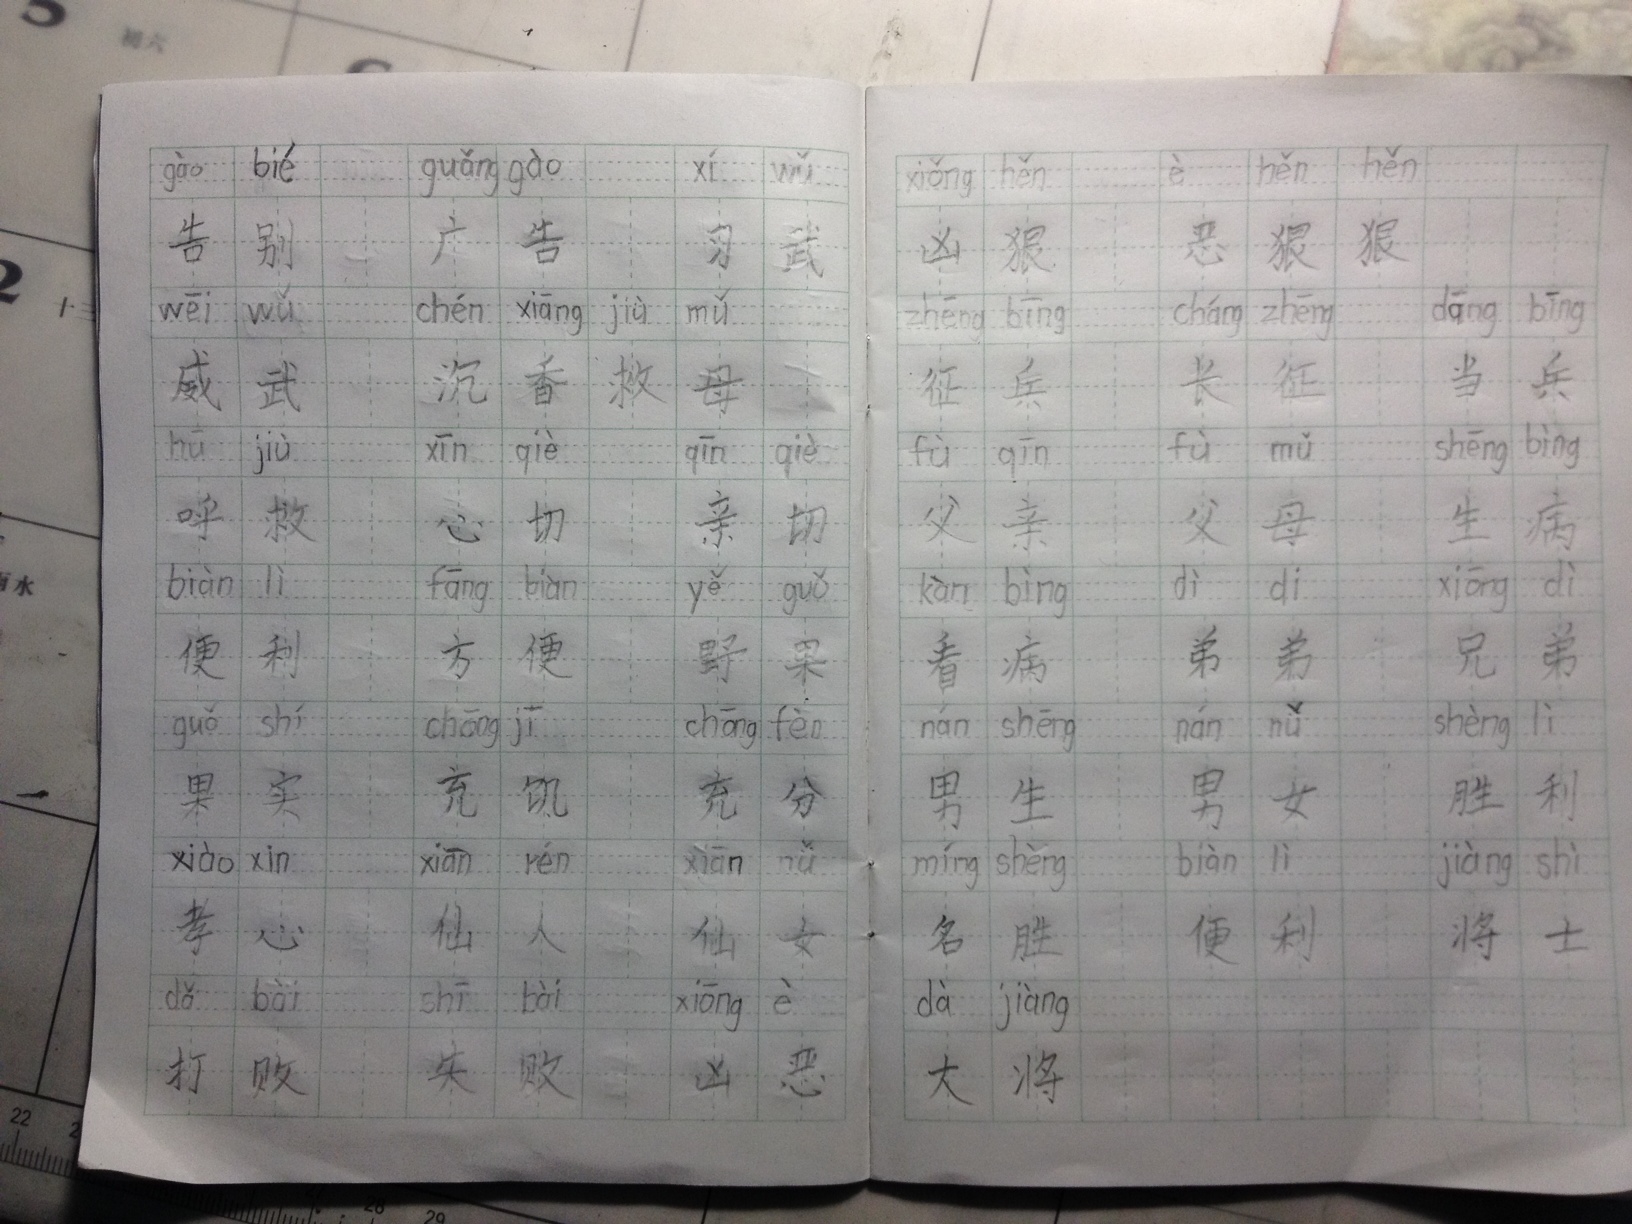 5 初六
6
gào bié guǎng gào xí wǔ
告 别 广 告 习 武
wēi wǔ chén xiāng jiù mǔ
威 武 沉 香 救 母
hū jiù xīn qiè qīn qiè
呼 救 心 切 亲 切
biàn lì fāng biàn yě guǒ
便 利 方 便 野 果
guǒ shí chōng jī chōng fèn
果 实 充 饥 充 分
xiào xin xiān rén xiān nǚ
孝 心 仙 人 仙 女
dǎ bài shī bài xiōng è
打 败 失 败 凶 恶
xiǒng hěn è hěn hěn
凶 狠 恶 狠 狠
zhēng bīng cháng zhēng dāng bīng
征 兵 长 征 当 兵
fù qīn fù mǔ shēng bìng
父 亲 父 母 生 病
kàn bìng dì di xiōng dì
看 病 弟 弟 兄 弟
nán shēng nán nǚ shèng lì
男 生 男 女 胜 利
míng shèng biàn lì jiàng shì
名 胜 便 利 将 士
dà jiàng
大 将
2
雨水
22
28 29